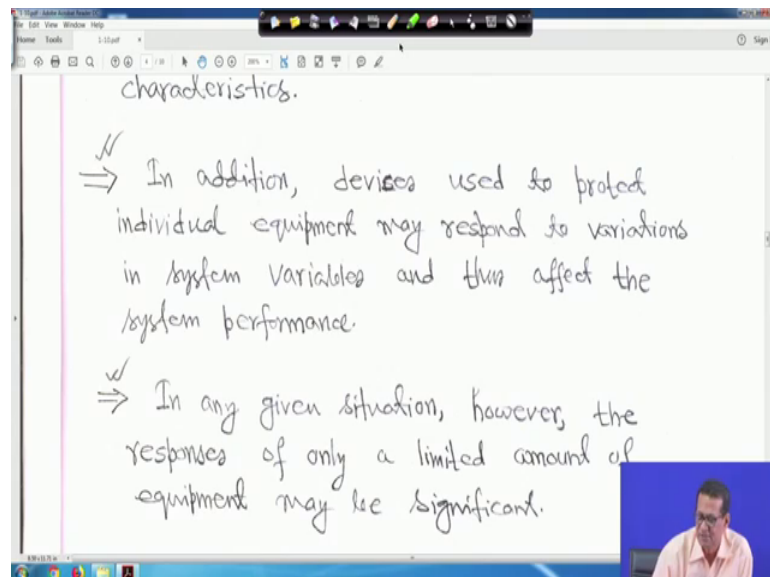 1-10.pdf - Adobe Acrobat Reader DC
File Edit View Window Help
Home Tools 1-10.pdf Sign
characteristics.
⇒ In addition, devices used to protect
individual equipment may respond to variations
in system variables and thus affect the
system performance.
⇒ In any given situation, however, the
responses of only a limited amount of
equipment may be significant.